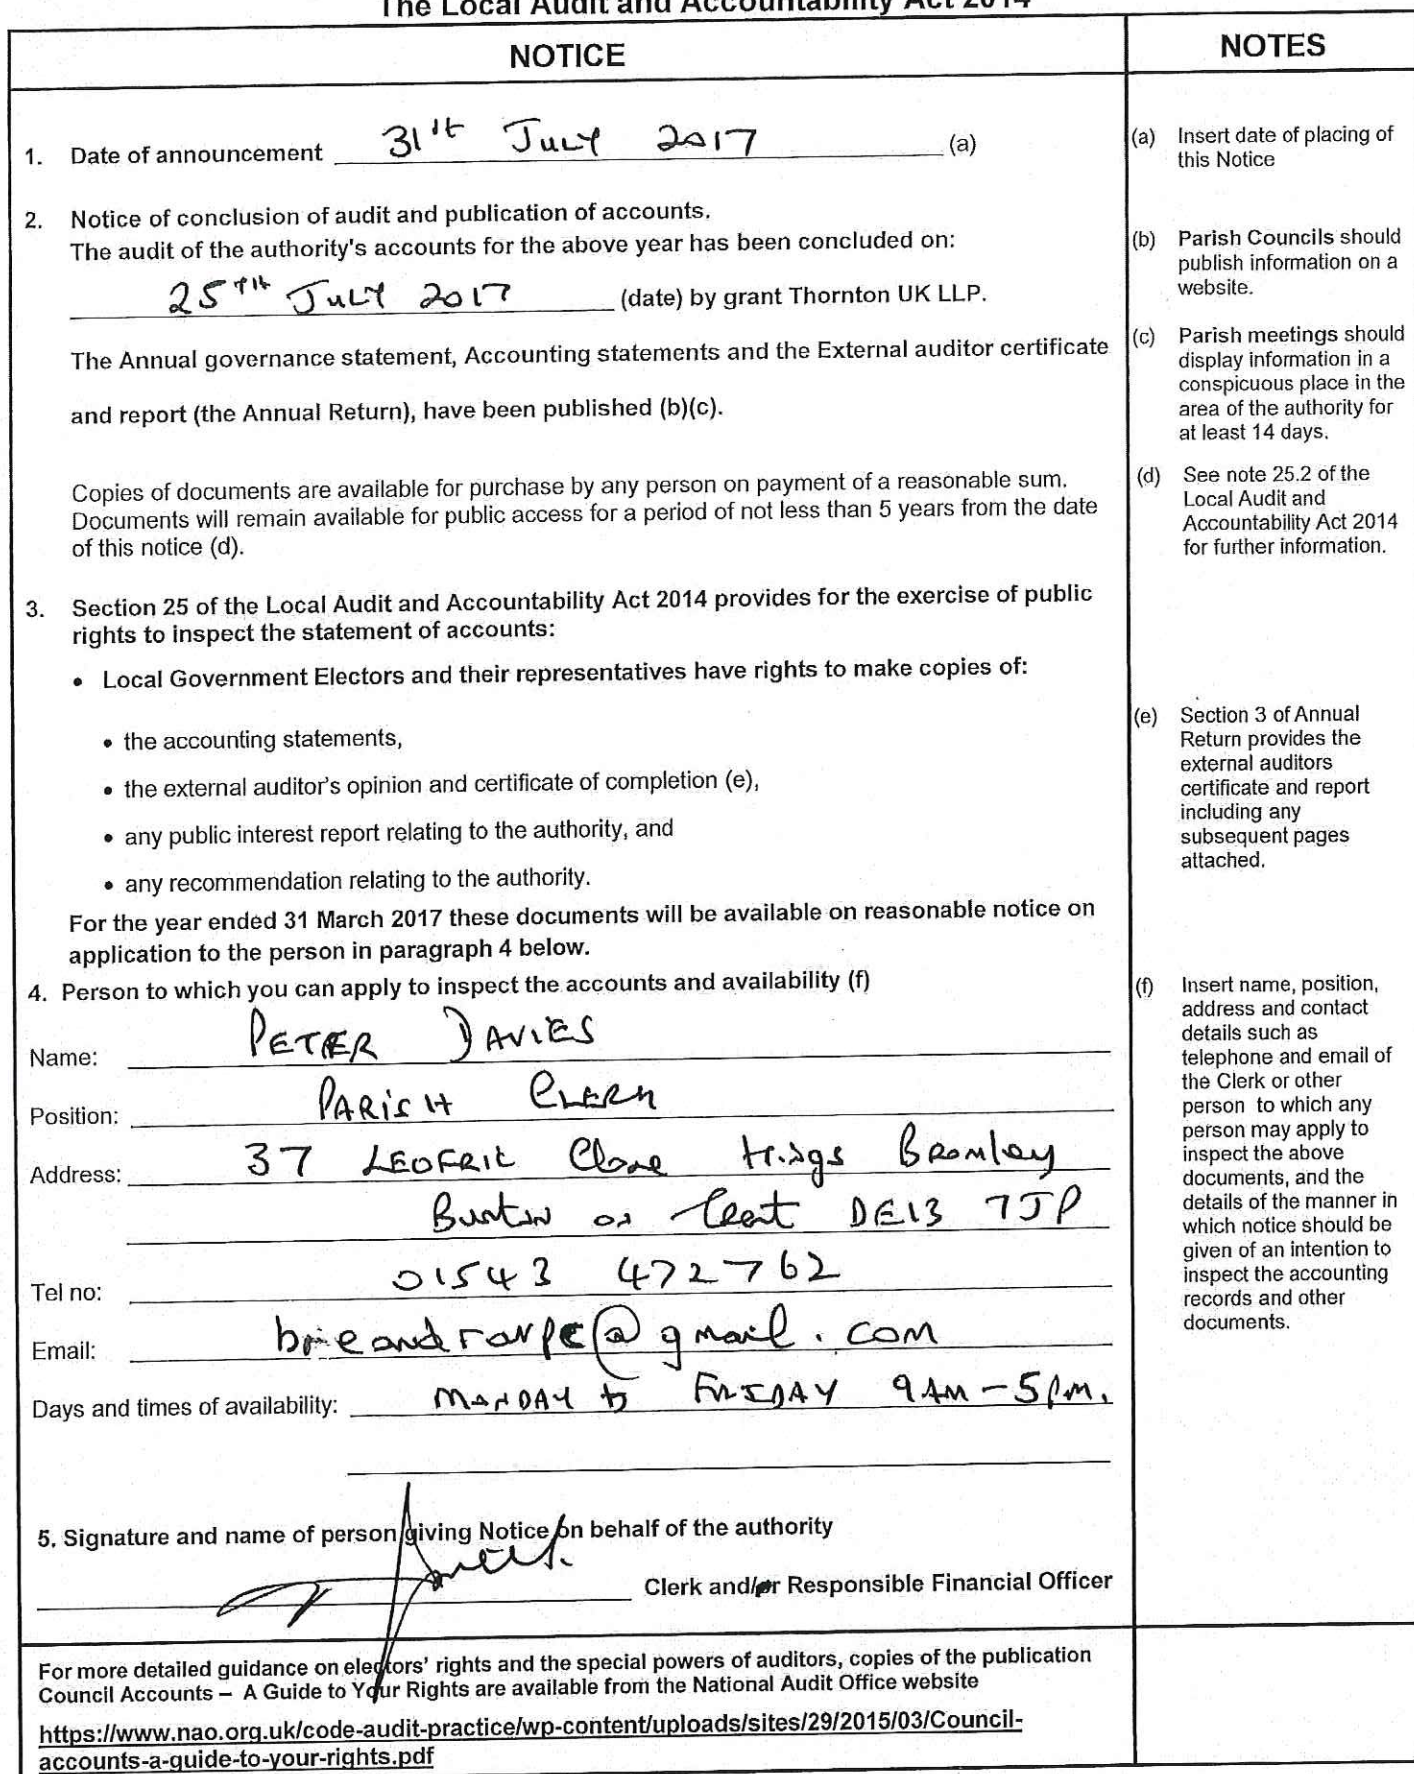 The Local Audit and Accountability Act 2014
NOTICE
1. Date of announcement 31st July 2017 (a)
2. Notice of conclusion of audit and publication of accounts.
The audit of the authority's accounts for the above year has been concluded on:
25TH July 2017 (date) by grant Thornton UK LLP.
The Annual governance statement, Accounting statements and the External auditor certificate
and report (the Annual Return), have been published (b)(c).
Copies of documents are available for purchase by any person on payment of a reasonable sum.
Documents will remain available for public access for a period of not less than 5 years from the date
of this notice (d).
3. Section 25 of the Local Audit and Accountability Act 2014 provides for the exercise of public
rights to inspect the statement of accounts:
• Local Government Electors and their representatives have rights to make copies of:
• the accounting statements,
• the external auditor's opinion and certificate of completion (e),
• any public interest report relating to the authority, and
• any recommendation relating to the authority.
For the year ended 31 March 2017 these documents will be available on reasonable notice on
application to the person in paragraph 4 below.
4. Person to which you can apply to inspect the accounts and availability (f)
Name: PETER DAVIES
Position: PARISH CLERK
Address: 37 LEOFRIC Close Kings Bromley
Burton on Trent DE13 7JP
Tel no: 01543 472762
Email: @gmail.com
Days and times of availability: MONDAY to FRIDAY 9AM - 5PM.
5. Signature and name of person giving Notice on behalf of the authority
Clerk and/or Responsible Financial Officer
For more detailed guidance on electors' rights and the special powers of auditors, copies of the publication
Council Accounts – A Guide to Your Rights are available from the National Audit Office website
https://www.nao.org.uk/code-audit-practice/wp-content/uploads/sites/29/2015/03/Council-
accounts-a-guide-to-your-rights.pdf
NOTES
(a) Insert date of placing of
this Notice
(b) Parish Councils should
publish information on a
website.
(c) Parish meetings should
display information in a
conspicuous place in the
area of the authority for
at least 14 days.
(d) See note 25.2 of the
Local Audit and
Accountability Act 2014
for further information.
(e) Section 3 of Annual
Return provides the
external auditors
certificate and report
including any
subsequent pages
attached.
(f) Insert name, position,
address and contact
details such as
telephone and email of
the Clerk or other
person to which any
person may apply to
inspect the above
documents, and the
details of the manner in
which notice should be
given of an intention to
inspect the accounting
records and other
documents.